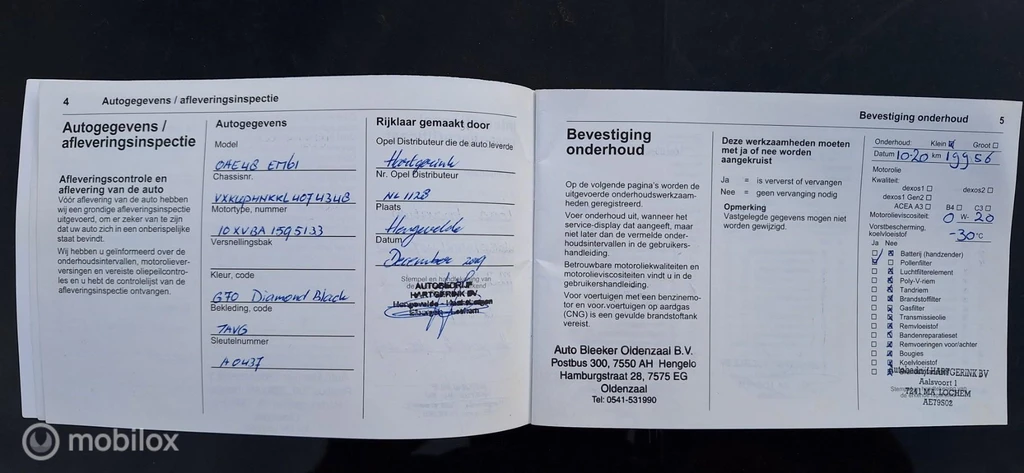 4 Autogegevens / afleveringsinspectie
Autogegevens /
afleveringsinspectie
Afleveringscontrole en
aflevering van de auto
Vóór aflevering van de auto hebben
wij een grondige afleveringsinspectie
uitgevoerd, om er zeker van te zijn
dat uw auto zich in een onberispelijke
staat bevindt.
Wij hebben u geïnformeerd over de
onderhoudsintervallen, motoroliever-
versingen en vereiste oliepeilcontro-
les en u hebt de controlelijst van de
afleveringsinspectie ontvangen.
Autogegevens
Model
0AE48 EMB1
Chassisnr.
Motortype, nummer
10XVBA 1595133
Versnellingsbak
Kleur, code
G70 Diamond Black
Bekleding, code
TAVG
Sleutelnummer
A0437
Rijklaar gemaakt door
Opel Distributeur die de auto leverde
Hartgerink
Nr. Opel Distributeur
NL1128
Plaats
Hengevelde
Datum
December 2019
Stempel en handtekening van
AUTOBEDRIJF
HARTGERINK BV.
Bevestiging onderhoud 5
Bevestiging
onderhoud
Op de volgende pagina's worden de
uitgevoerde onderhoudswerkzaam-
heden geregistreerd.
Voer onderhoud uit, wanneer het
service-display dat aangeeft, maar
niet later dan de vermelde onder-
houdsintervallen in de gebruikers-
handleiding.
Betrouwbare motoroliekwaliteiten en
motorolieviscositeiten vindt u in de
gebruikershandleiding.
Voor voertuigen met een benzinemo-
tor en voor voertuigen op aardgas
(CNG) is een gevulde brandstoftank
vereist.
Auto Bleeker Oldenzaal B.V.
Postbus 300, 7550 AH Hengelo
Hamburgstraat 28, 7575 EG
Oldenzaal
Tel: 0541-531990
Deze werkzaamheden moeten
met ja of nee worden
aangekruist
Ja = is ververst of vervangen
Nee = geen vervanging nodig
Opmerking
Vastgelegde gegevens mogen niet
worden gewijzigd.
Onderhoud: Klein Groot
Datum 10-20 km 19956
Motorolie
Kwaliteit:
dexos1 dexos2
dexos1 Gen2
ACEA A3 B4 C3
Motorolieviscositeit: 0 W- 20
Vorstbescherming,
koelvloeistof -30°C
Ja Nee
Batterij (handzender)
Pollenfilter
Luchtfilterelement
Poly-V-riem
Tandriem
Brandstoffilter
Gasfilter
Transmissieolie
Remvloeistof
Bandenreparatieset
Remvoeringen voor/achter
Bougies
Koelvloeistof
Autobedrijf HARTGERINK BV
Aalsvoort 1
7241 MA LOCHEM
AE79S02
mobilox